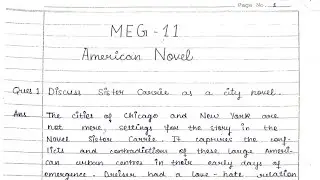 Page No. 1
MEG-11
American Novel
Ques 1 Discuss Sister Carrie as a city novel.
Ans. The cities of Chicago and New York are
not mere, settings for the story in the
Novel Sister Carrie. It captures the conf-
licts and contradictions of these large Ameri-
can urban centres in their early days of
emergence. Dreiser had a love-hate relation